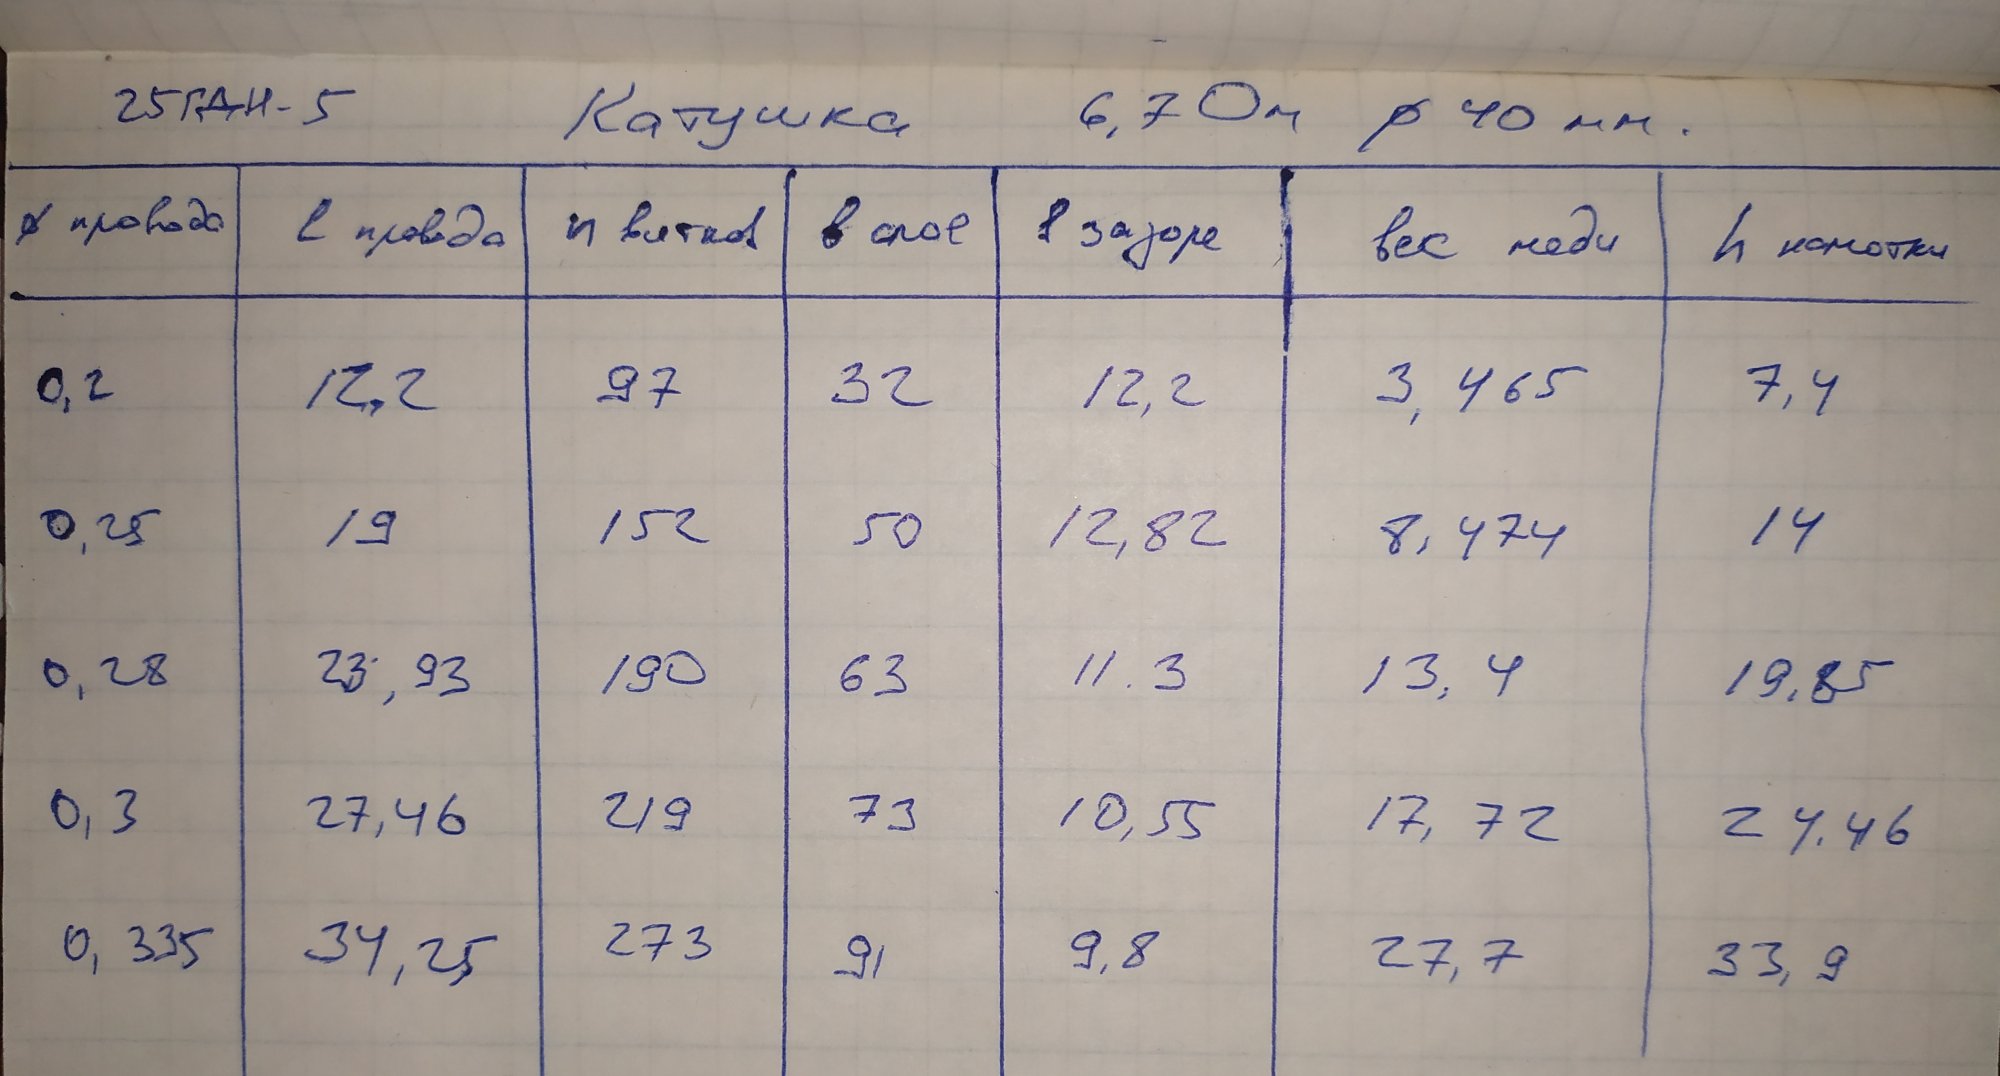 25ГДН-5 Катушка 6,7 Ом ⌀ 40 мм.
⌀ провода L провода n витков в слое в зазоре вес меди h намотки
0,2 12,2 97 32 12,2 3,465 7,4
0,25 19 152 50 12,82 8,474 14
0,28 23,93 190 63 11.3 13,4 19,85
0,3 27,46 219 73 10,55 17,72 24.46
0,335 34,25 273 91 9,8 27,7 33,9